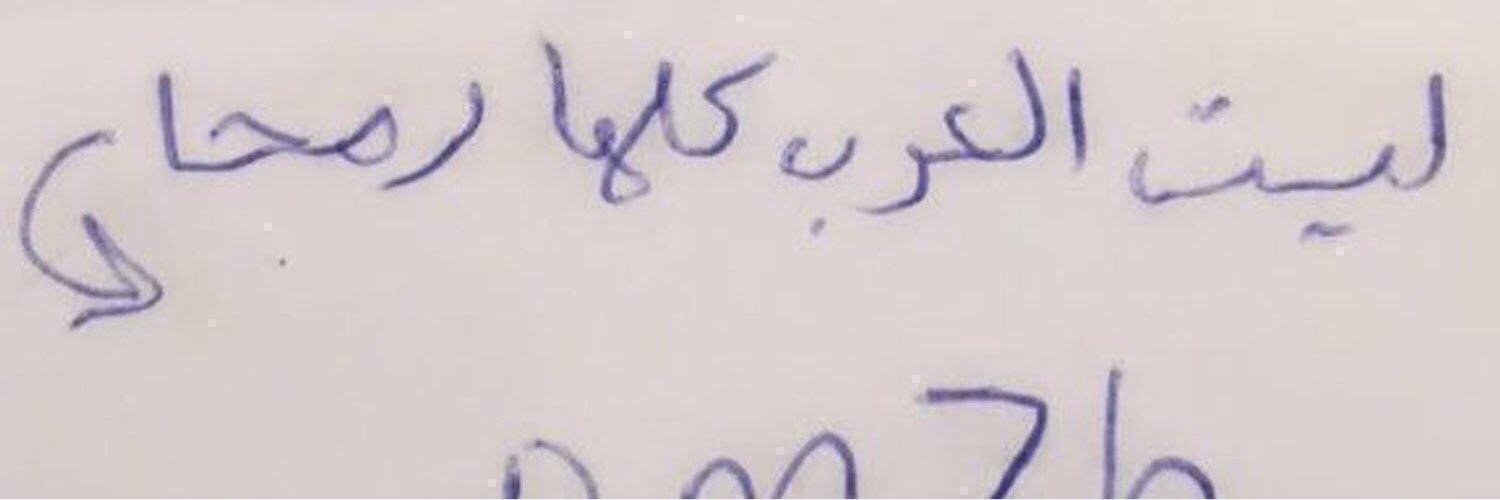 ليت العرب كلها رمحا